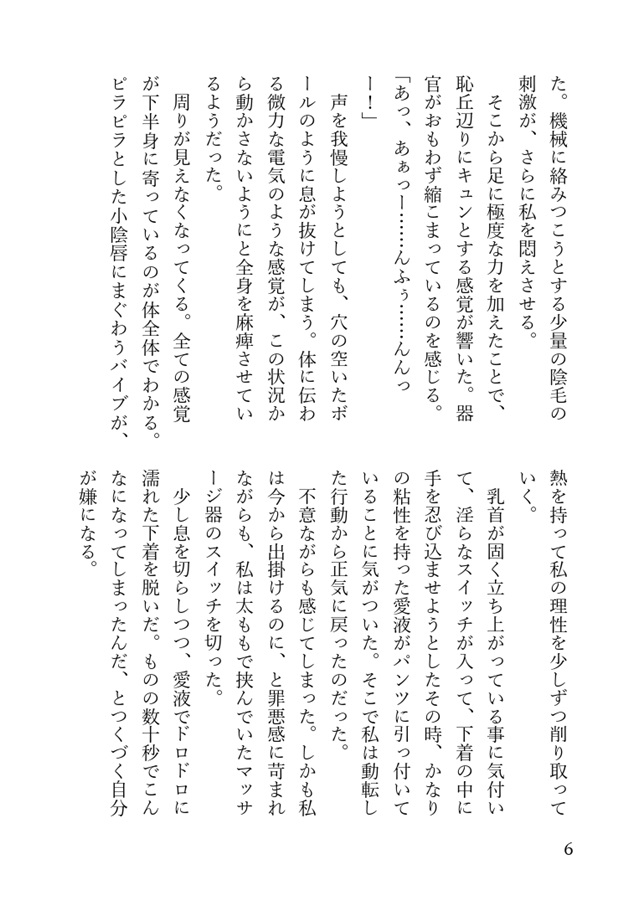 た。機械に絡みつこうとする少量の陰毛の
刺激が、さらに私を悶えさせる。
そこから足に極度な力を加えたことで、
恥丘辺りにキュンとする感覚が響いた。器
官がおもわず縮こまっているのを感じる。
「あっ、あぁっー……んふぅ……んんっ
ー！」
声を我慢しようとしても、穴の空いたボ
ールのように息が抜けてしまう。体に伝わ
る微力な電気のような感覚が、この状況か
ら動かさないようにと全身を麻痺させてい
るようだった。
周りが見えなくなってくる。全ての感覚
が下半身に寄っているのが体全体でわかる。
ピラピラとした小陰唇にまぐわうバイブが、
熱を持って私の理性を少しずつ削り取って
いく。
乳首が固く立ち上がっている事に気付い
て、淫らなスイッチが入って、下着の中に
手を忍び込ませようとしたその時、かなり
の粘性を持った愛液がパンツに引っ付いて
いることに気がついた。そこで私は動転し
た行動から正気に戻ったのだった。
不意ながらも感じてしまった。しかも私
は今から出掛けるのに、と罪悪感に苛まれ
ながらも、私は太ももで挟んでいたマッサ
ージ器のスイッチを切った。
少し息を切らしつつ、愛液でドロドロに
濡れた下着を脱いだ。ものの数十秒でこん
なになってしまったんだ、とつくづく自分
が嫌になる。
6